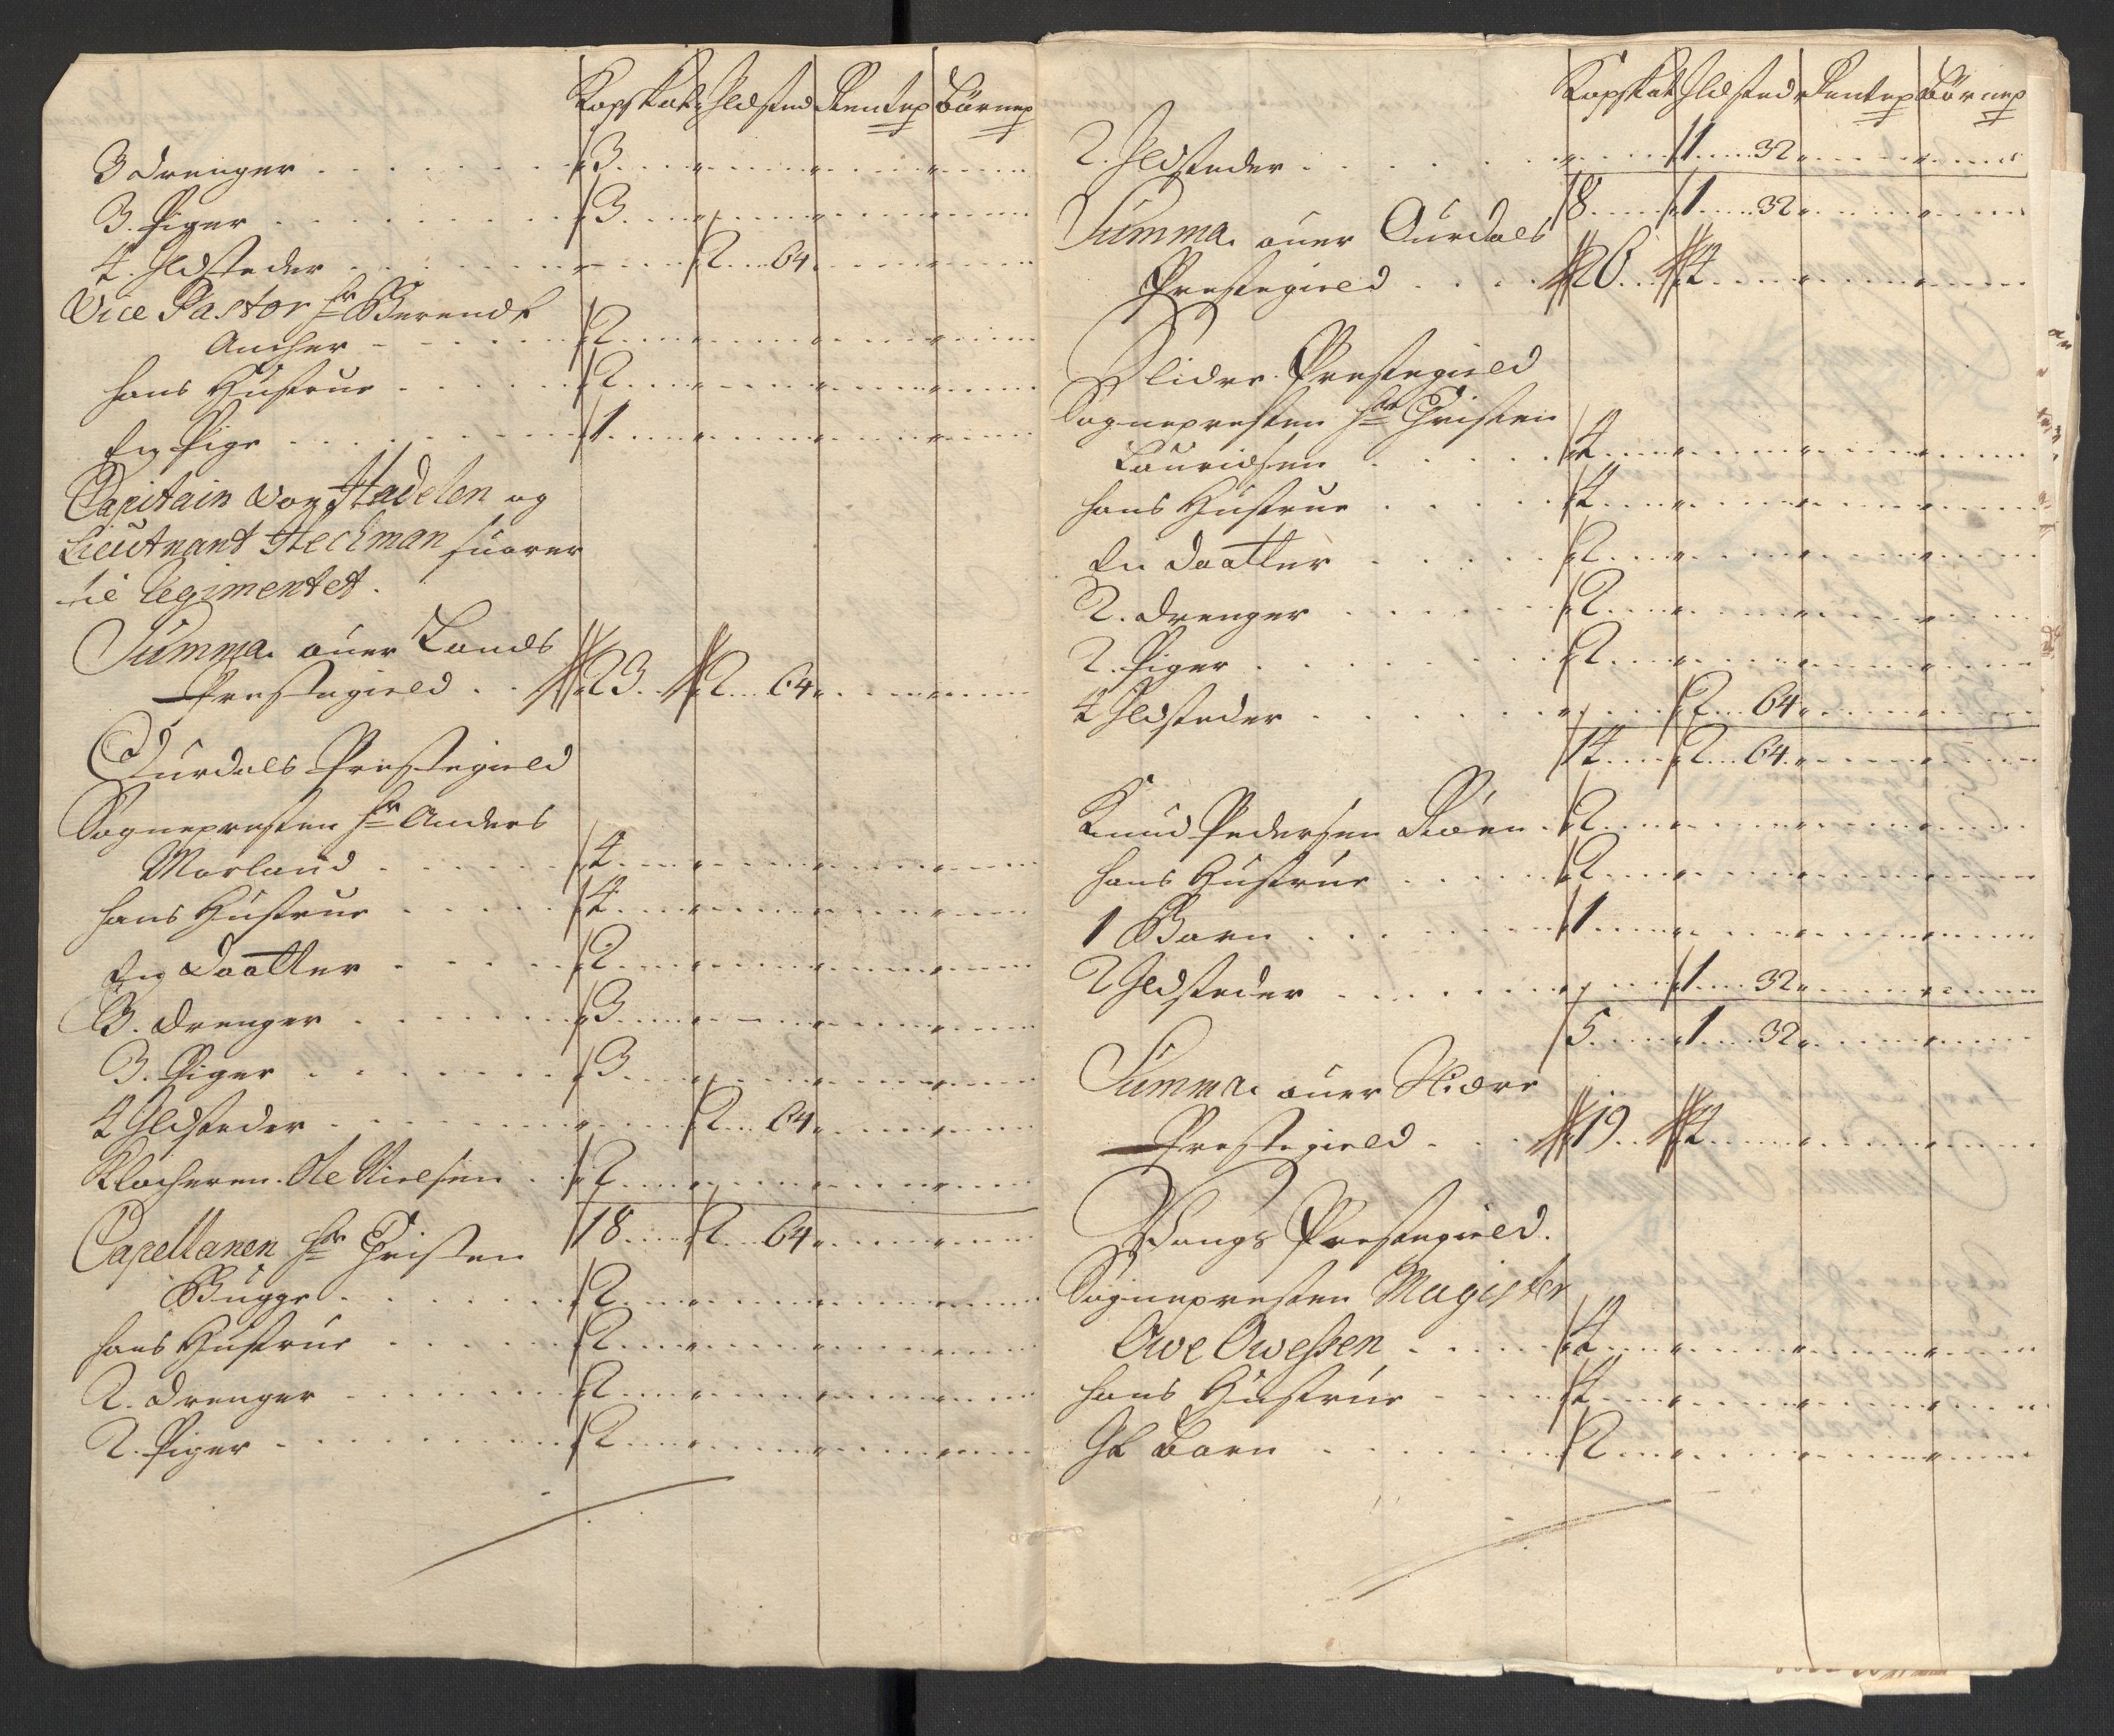 Kopskat Ildsted Rentep Börnep
3 drenger . . . 3
3. Piger . . . 3
4. Ildsteder . . . 2 64
Vice Pastor Hr Berendt
Ancher . . . 2
hans Hustrue . . . 2
En Pige . . . 1
Capitain von Stadelen og
Lieutnant Heckman suarer
til Regimentet.
Summa. ouer Lands
Prestegield . . 23 2 64
Ourdals Prestegield
Sognepresten Hr Anders
Morland . . . 4
hans Hustrue . . . 4
En Daatter . . . 2
3. drenger . . . 3
3. Piger . . . 3
4 Ildsteder . . . 2 64
Klocheren. Ole Nielsen . 2
18 2 64
Capellanen Hr Christen
Bugge . . . 2
hans Hustrue . . . 2
2. drenger . . . 2
2. Piger . . . 2
Kopskat Ildsted Rentep Börnep
2. Ildsteder . . . 1 32
8 1 32
Summa. ouer Ourdals
Prestegield . . . 26 4
Slidre Prestegield
Sognepresten Hr Christen
Lauridsen . . . 4
hans Hustrue . . . 4
En Daatter . . . 2
2. drenger . . . 2
2. Piger . . . 2
4 Ildsteder . . . 2 64
14 2 64
Knud Pedersen Röen . 2
hans Hustrue . . . 2
1 Barn . . . 1
2 Ildsteder . . . 1 32
5 1 32
Summa ouer Slidre
Prestegield . . . 19 4
Wangs Prestegield.
Sognepresten Magister
Owe Owessen . . . 4
hans Hustrue . . . 4
It barn . . . 2